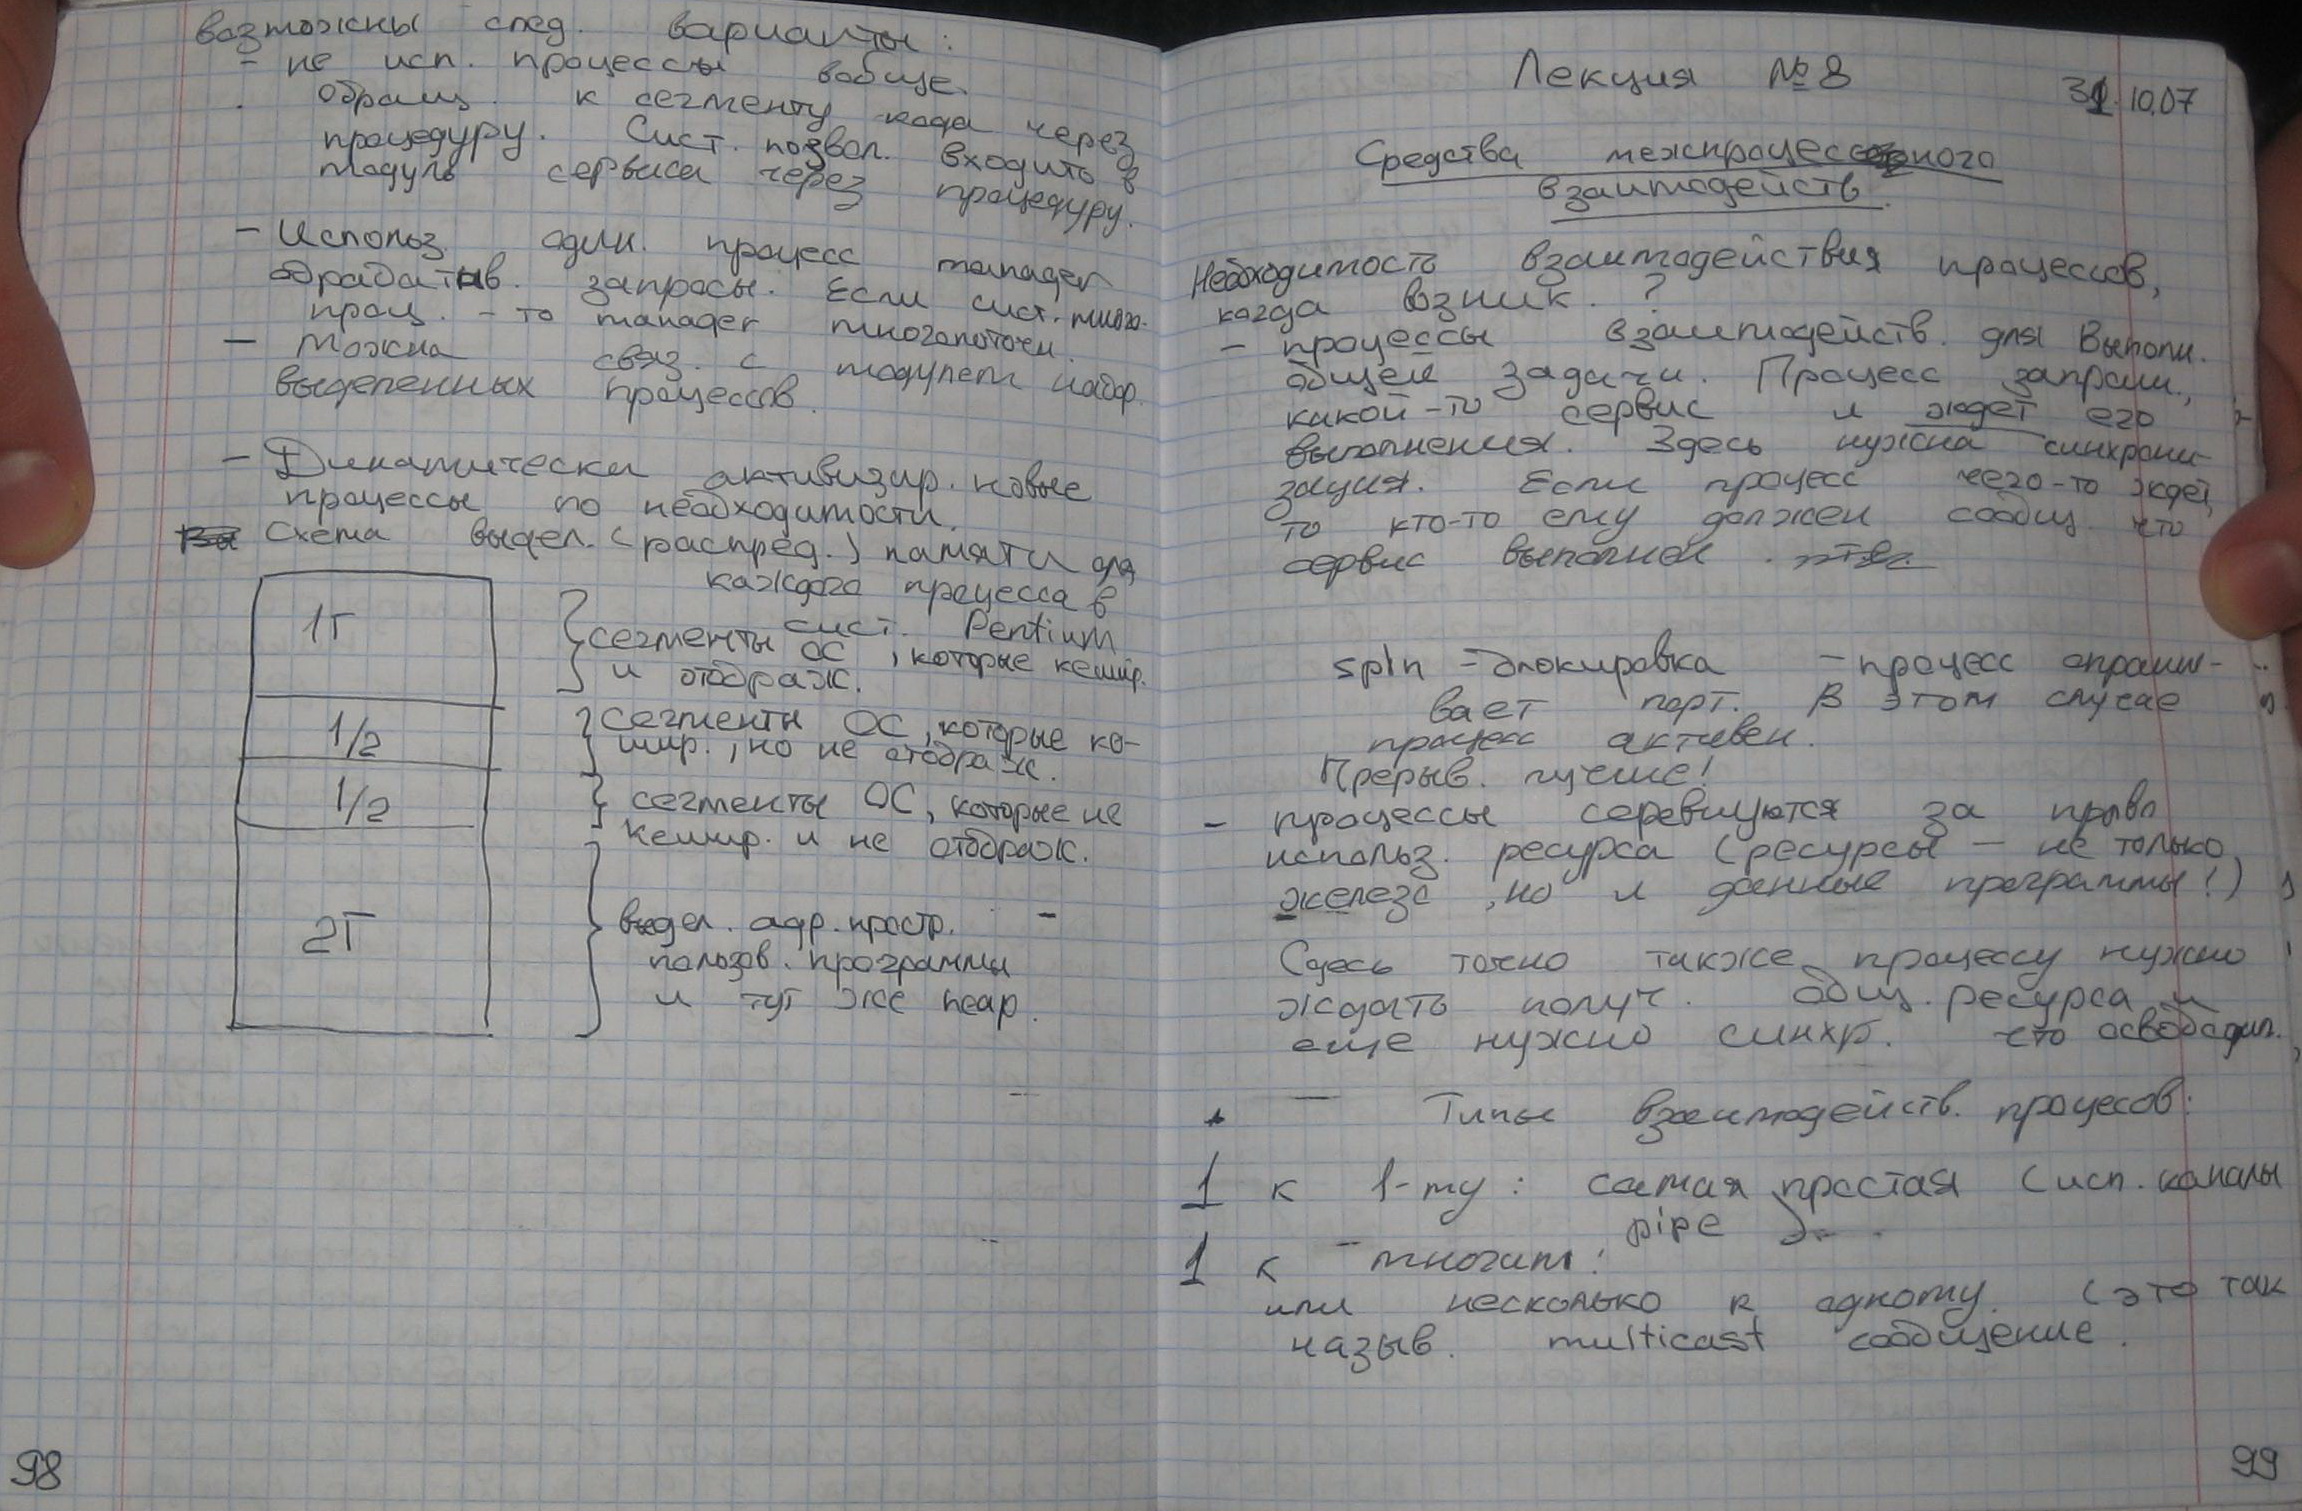 возможны след. варианты:
- не исп. процессы вобще.
обращ. к сегменту кода через
процедуру. Сист. позвол. входить в
модуль сервиса через процедуру.
- Использ. один. процесс manager
обрабатыв. запросы. Если сист. много-
проц. - то manager многопоточн.
- Можна связ. с модулем набор.
выделенных процессов.
- Динамически активизир. новые
процессы по необходимости.
Схема выдел. (распред.) памяти для
каждого процесса в
сист. Pentium
1Г
сегменты ОС, которые кешир.
и отображ.
1/2
сегменты ОС, которые ке-
шир., но не отображ.
1/2
сегменты ОС, которые не
кешир. и не отображ.
2Г
выдел. адр. простр.
пользов. программы
и тут же
98
Лекция №8
31.10.07
Средства межпроцессного
взаимодейств.
Необходимость взаимодействия процессов,
когда возник. ?
- процессы взаимодейств. для выполн.
общей задачи. Процесс запраш.,
какой-то сервис и ждет его
выполнения. Здесь нужна синхрони-
зация. Если процесс чего-то ждет,
то кто-то ему должен сообщ. что
сервис выполнен.
spin-блокировка - процесс опраши-
вает порт. В этом случае
процесс активен.
Прерыв. лучше!
- процессы соревнуются за право
использ. ресурса (ресурсы - не только
железо, но и данные программы!)
Сдесь точно также процессу нужно
ждать получ. общ. ресурса и
еще нужно синхр. что освободил.
Типы взаимодейств. процесов:
1 к 1-му: самая простая (исп. каналы
pipe)
1 к многим:
или несколько к одному. (это так
назыв. multicast сообщение.
99